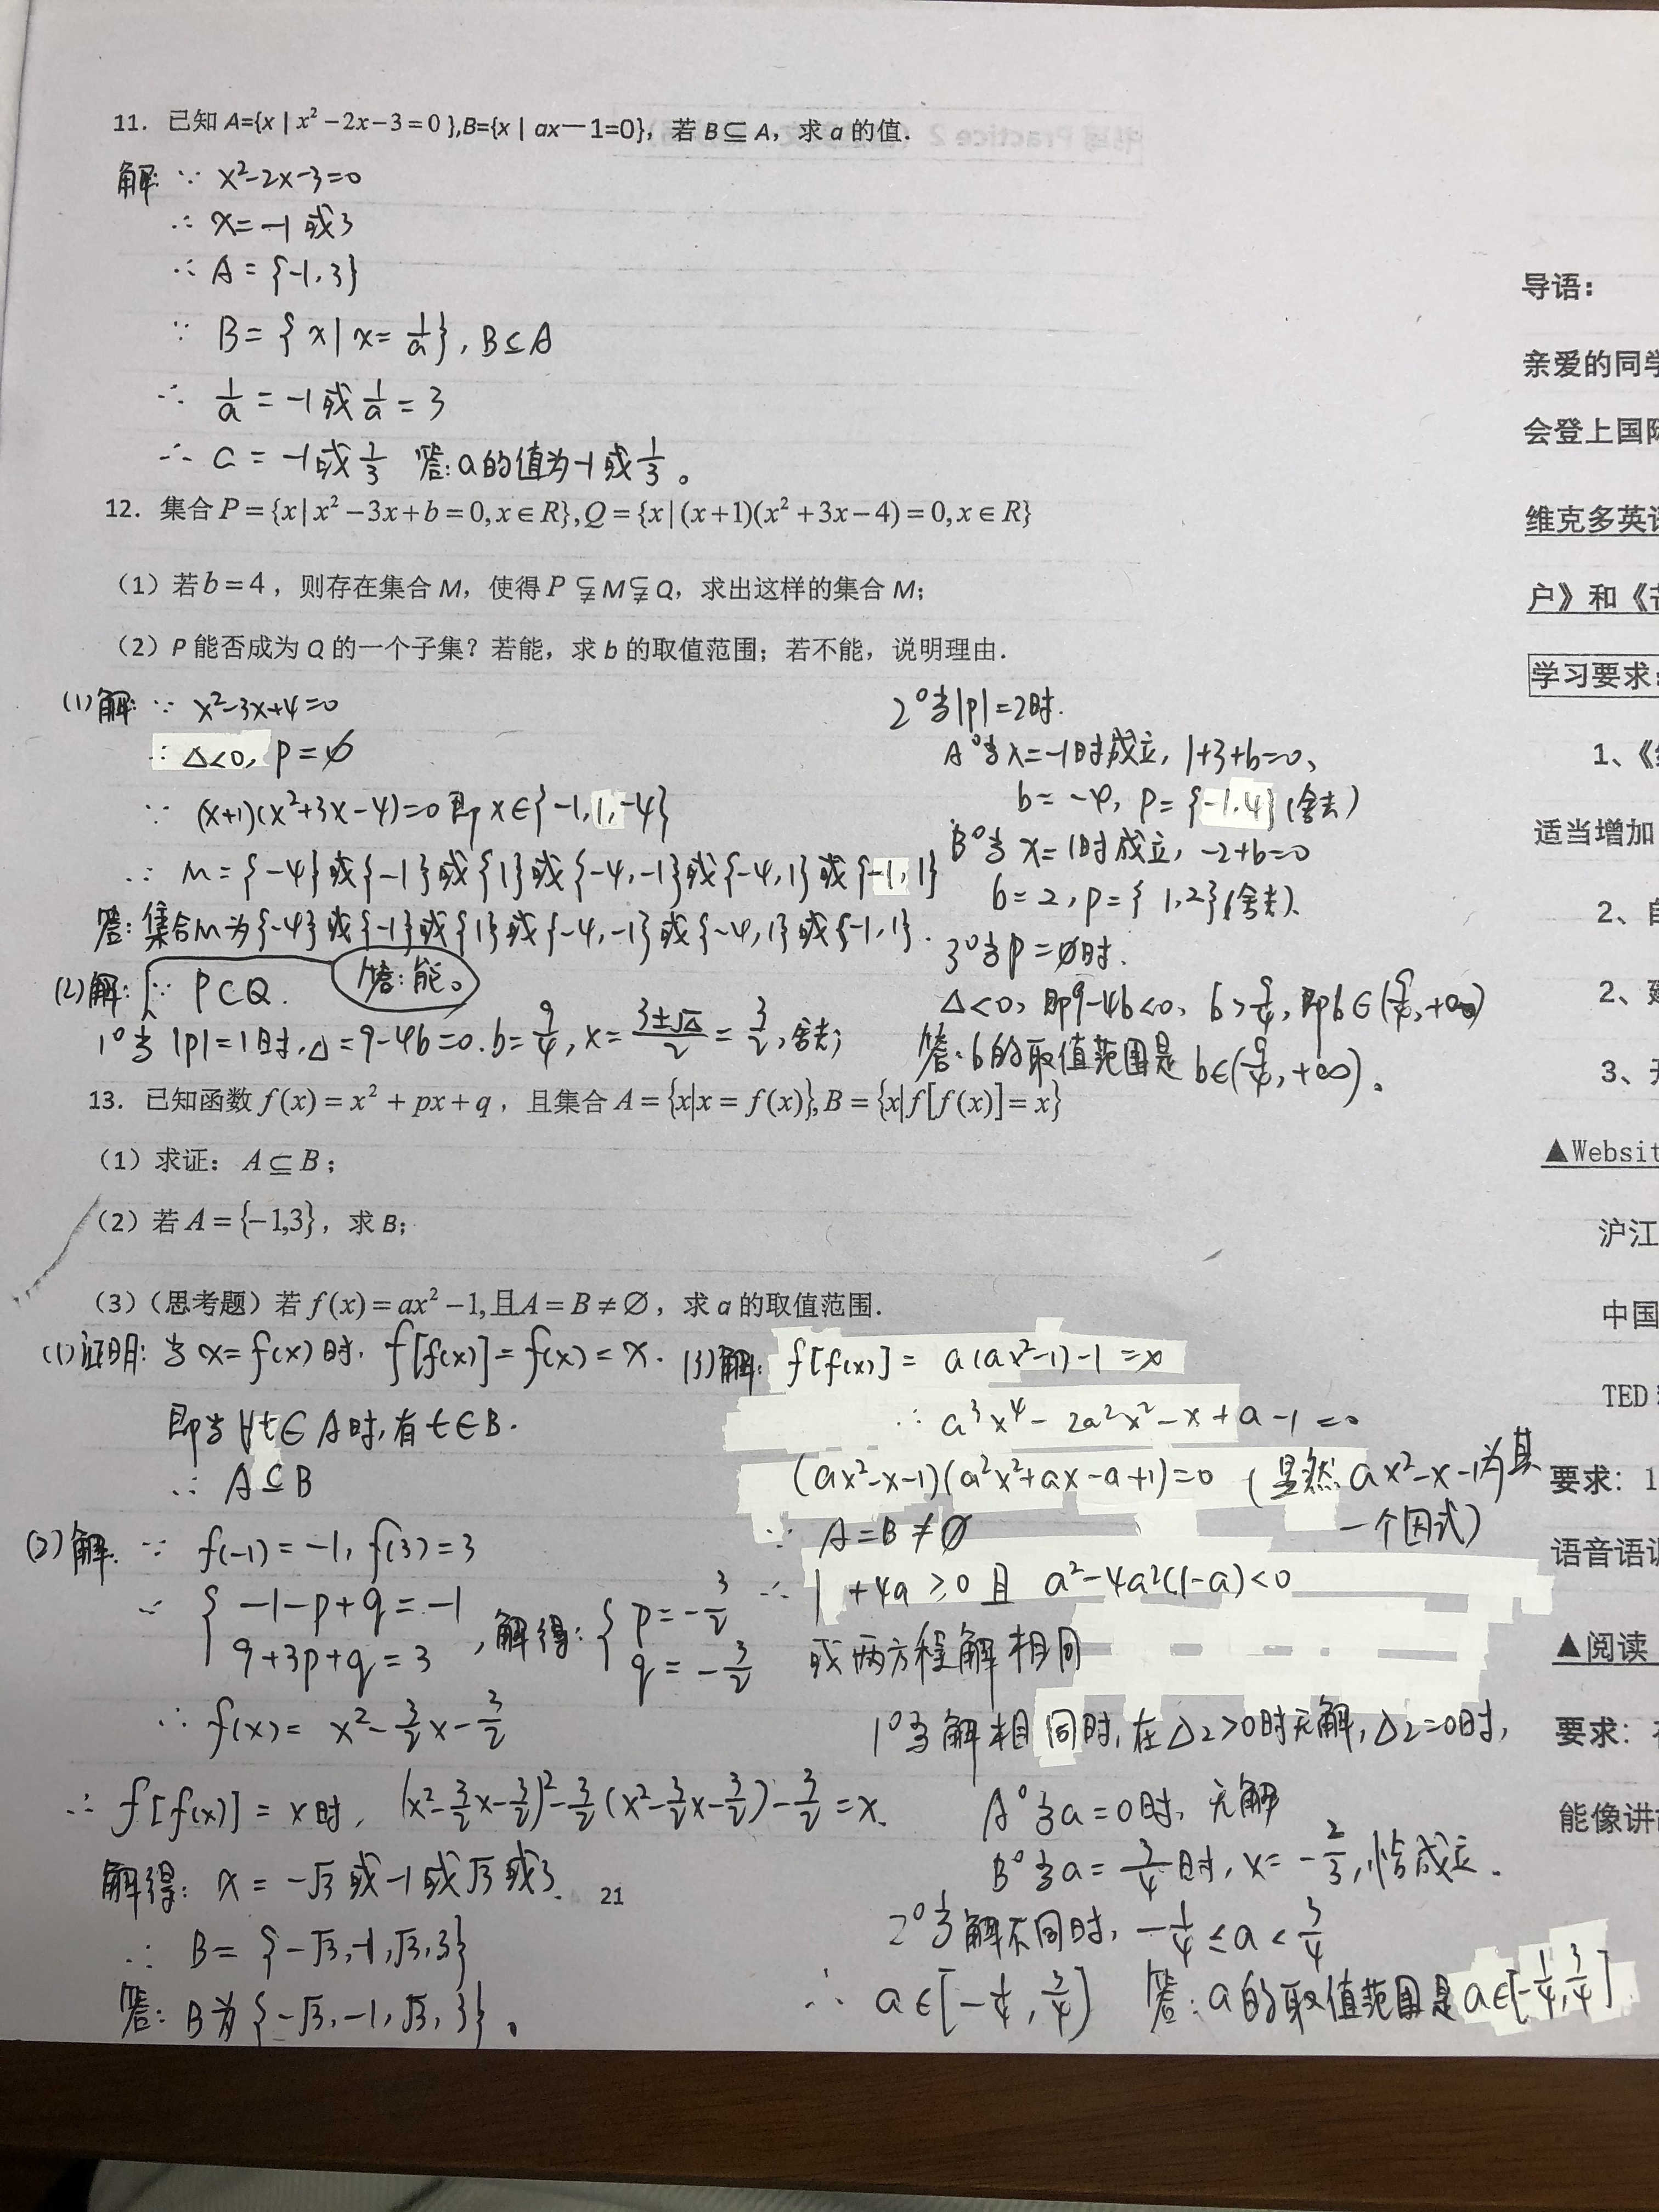 11. 已知 A={x | x²−2x−3=0},B={x | ax—1=0}, 若 B⊆A, 求 a 的值.
解: ∵ x²-2x-3=0
∴ x=-1或3
∴ A={-1,3}
∵ B={x|x=1/a}, B⊆A
∴ 1/a=-1或1/a=3
∴ a=-1或1/3 答:a的值为-1或1/3。
12. 集合 P={x|x²−3x+b=0,x∈R},Q={x|(x+1)(x²+3x−4)=0,x∈R}
(1)若b=4, 则存在集合 M, 使得 P⫋M⫋Q, 求出这样的集合 M;
(2)P 能否成为 Q 的一个子集?若能, 求 b 的取值范围; 若不能, 说明理由.
(1)解: ∵ x²-3x+4=0
∴ Δ<0, P=∅
∵ (x+1)(x²+3x-4)=0即x∈{-1,1,-4}
∴ M={-4}或{-1}或{1}或{-4,-1}或{-4,1}或{-1,1}
答:集合M为{-4}或{-1}或{1}或{-4,-1}或{-4,1}或{-1,1}.
(2)解: ∵ P⊂Q. 答:能。
1°当|P|=1时,Δ=9-4b=0.b=9/4, x=(3±√Δ)/2=3/2,舍去;
2°当|P|=2时.
A°当x=-1时成立, 1+3+b=0,
b=-4, P={-1,4}(舍去)
B°当x=1时成立, -2+b=0
b=2, P={1,2}(舍去).
3°当P=∅时.
Δ<0, 即9-4b<0, b>9/4, 即b∈(9/4,+∞)
答:b的取值范围是b∈(9/4,+∞)。
13. 已知函数 f(x)=x²+px+q, 且集合 A={x|x=f(x)},B={x|f[f(x)]=x}
(1)求证: A⊆B;
(2)若 A={−1,3}, 求 B;
(3)(思考题)若 f(x)=ax²−1,且A=B≠∅, 求 a 的取值范围.
(1)证明:当x=f(x)时, f[f(x)]=f(x)=x.
即当∀t∈A时,有t∈B.
∴ A⊆B
(2)解: ∵ f(-1)=-1, f(3)=3
∴ {-1-p+q=-1 9+3p+q=3 ,解得:{p=-3/2 q=-3/2
∴ f(x)=x²-3/2x-3/2
∴ f[f(x)]=x时, (x²-3/2x-3/2)²-3/2(x²-3/2x-3/2)-3/2=x.
解得: x=-√3或-1或√3或3.
∴ B={-√3,-1,√3,3}
答: B为{-√3,-1,√3,3}。
(3)解: f[f(x)]=a(ax²-1)-1=x
∴ a³x⁴-2a²x²-x+a-1=0
(ax²-x-1)(a²x²+ax-a+1)=0 (显然ax²-x-1为其
一个因式)
∵ A=B≠∅
∴ 1+4a≥0且a²-4a²(1-a)<0
或两方程解相同
1°当解相同时,在Δ₂>0时无解,Δ₂=0时,
A°当a=0时, 无解
B°当a=3/4时, x=-2/3,恰成立.
2°当解不同时, -1/4≤a<3/4
∴ a∈[-1/4,3/4] 答:a的取值范围是a∈[-1/4,3/4]
21
导语:
亲爱的同学
会登上国际
维克多英语
户》和《
学习要求:
1、《
适当增加
2、自
2、
3、
▲Websit
沪江
中国
TED
要求: 1
语音语
▲阅读
要求:
能像讲